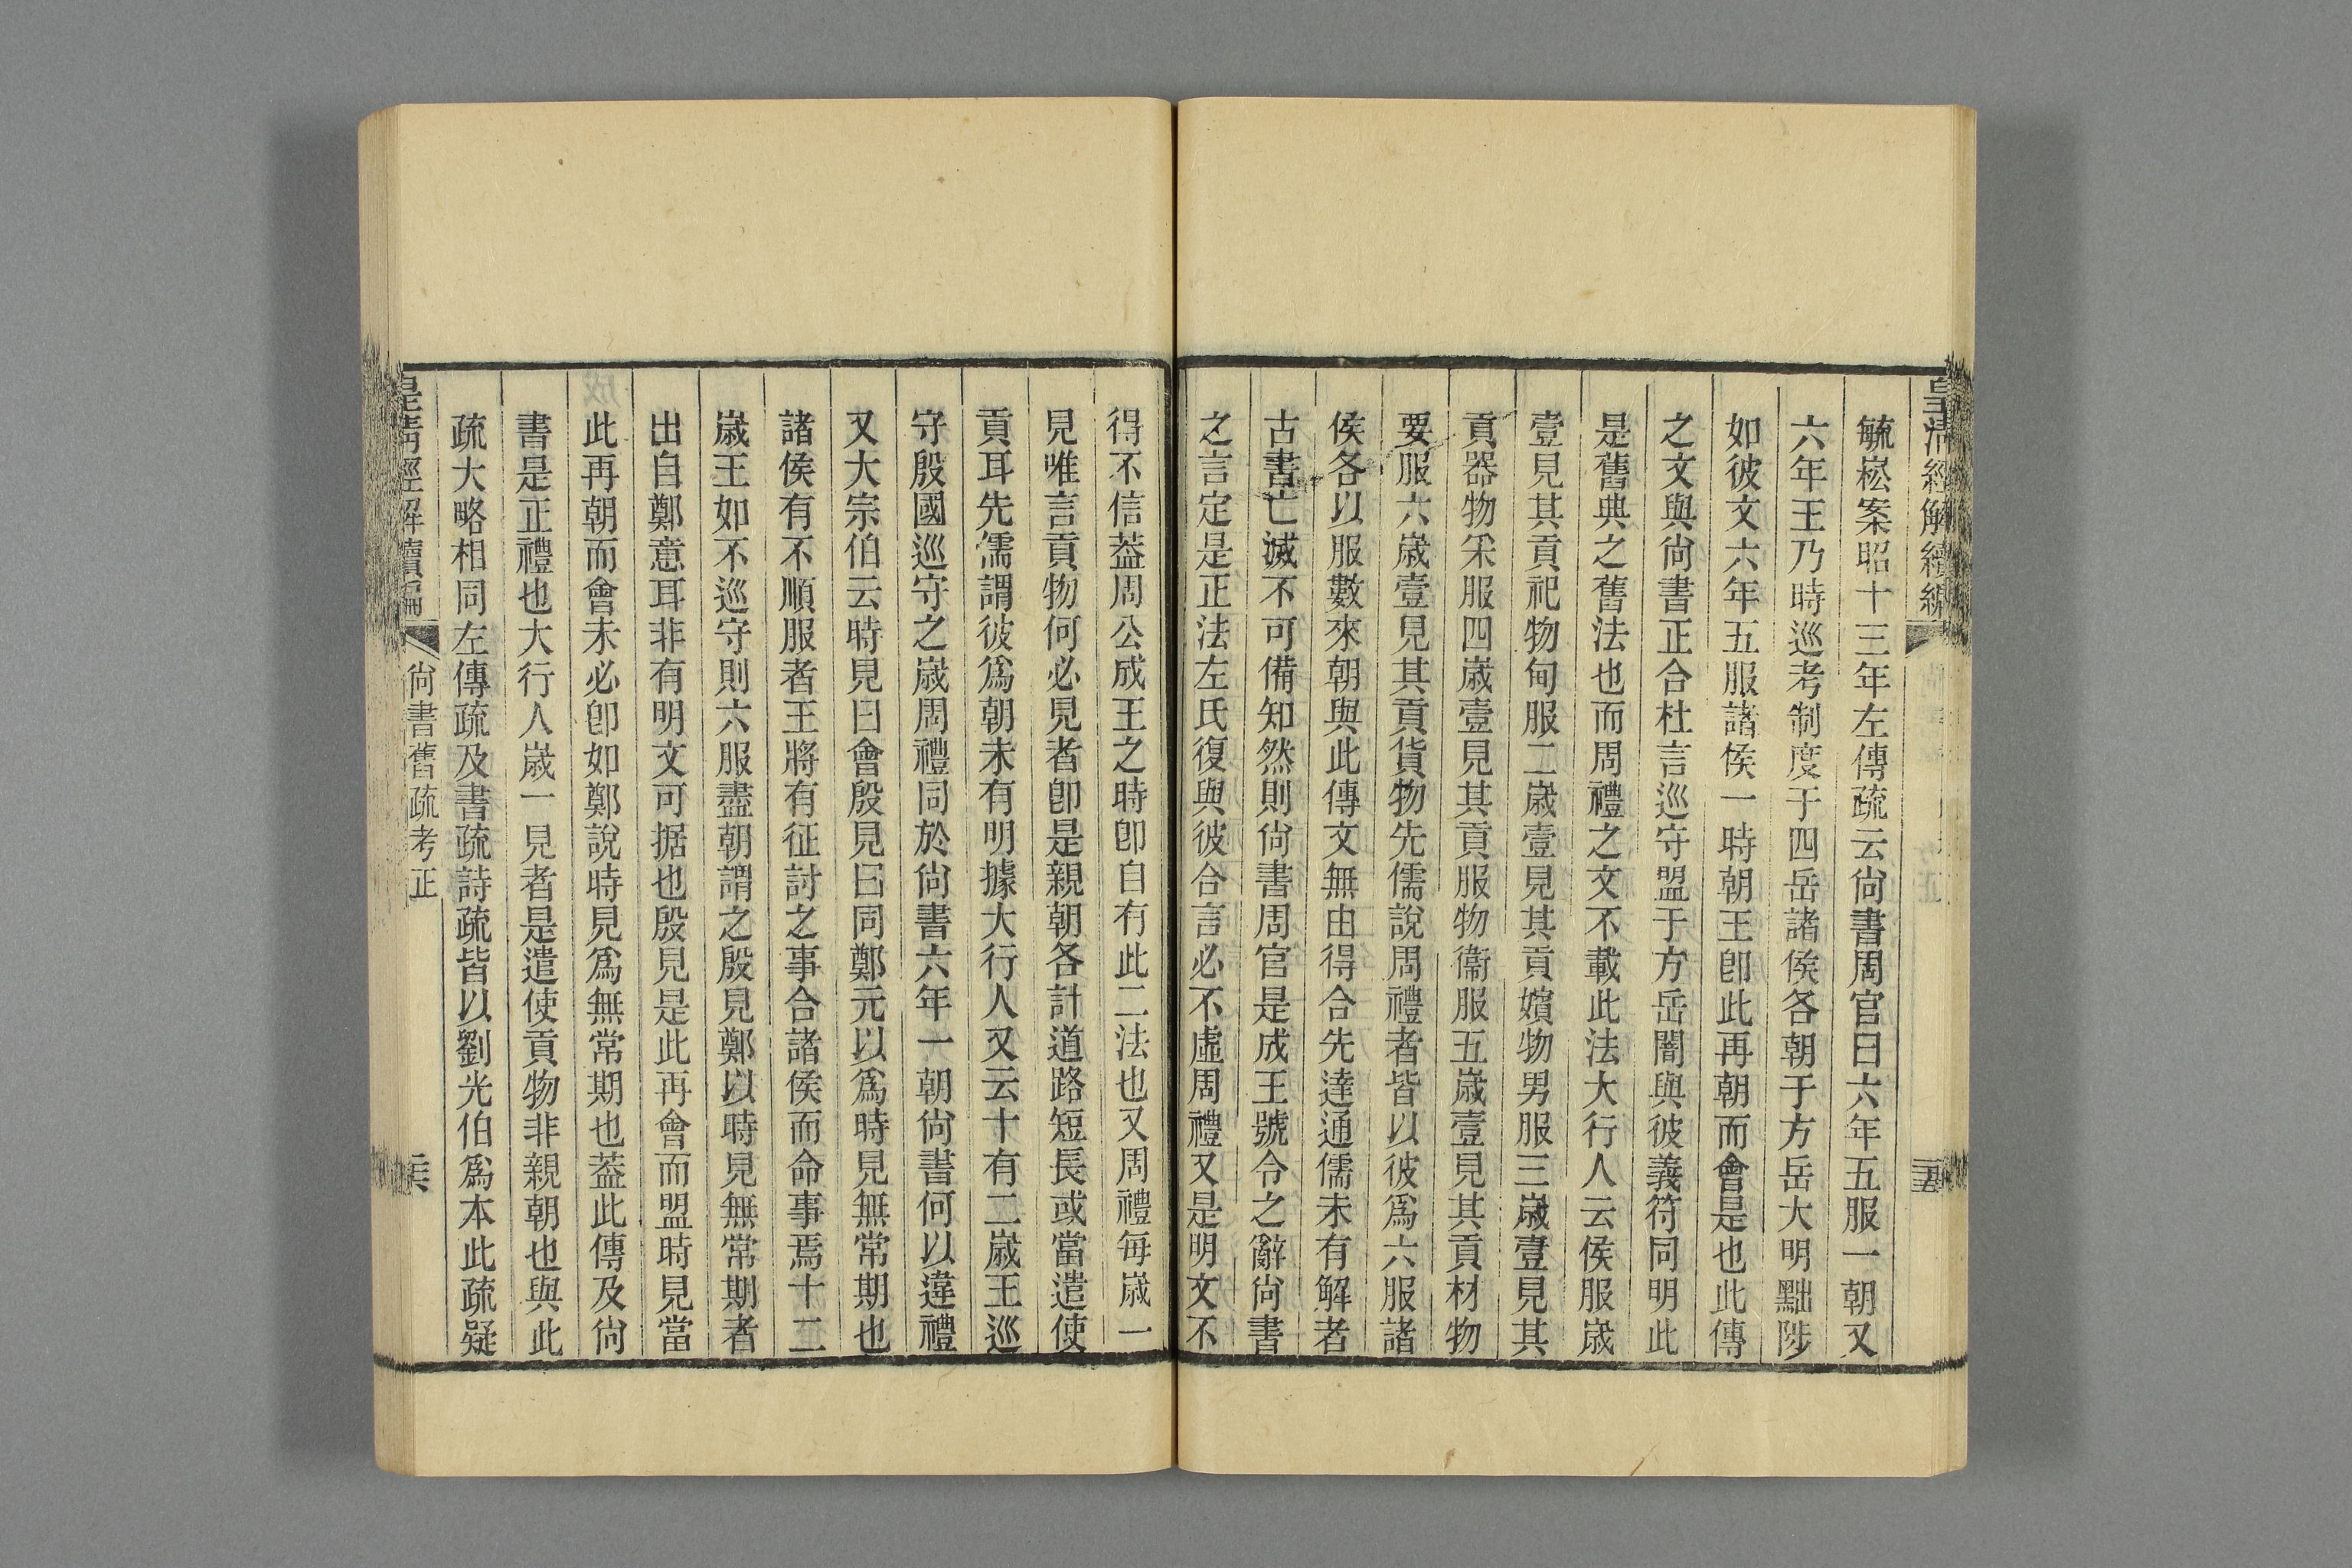 皇清經解續編
毓崧案昭十三年左傳疏云尙書周官曰六年五服一朝又
六年王乃時巡考制度于四岳諸侯各朝于方岳大明黜陟
如彼文六年五服諸侯一時朝王卽此再朝而會是也此傳
之文與尙書正合杜言巡守盟于方岳闇與彼義符同明此
是舊典之舊法也而周禮之文不載此法大行人云侯服歲
壹見其貢祀物甸服二歲壹見其貢嬪物男服三歲壹見其
貢器物采服四歲壹見其貢服物衞服五歲壹見其貢材物
要服六歲壹見其貢貨物先儒說周禮者皆以彼爲六服諸
侯各以服數來朝與此傳文無由得合先達通儒未有解者
古書亡滅不可備知然則尙書周官是成王號令之辭尙書
之言定是正法左氏復與彼合言必不虛周禮又是明文不
得不信葢周公成王之時卽自有此二法也又周禮每歲一
見唯言貢物何必見者卽是親朝各計道路短長或當遣使
貢耳先儒謂彼爲朝未有明據大行人又云十有二歲王巡
守殷國巡守之歲周禮同於尙書六年一朝尙書何以違禮
又大宗伯云時見曰會殷見曰同鄭元以爲時見無常期也
諸侯有不順服者王將有征討之事合諸侯而命事焉十二
歲王如不巡守則六服盡朝謂之殷見鄭以時見無常期者
出自鄭意耳非有明文可据也殷見是此再會而盟時見當
此再朝而會未必卽如鄭說時見爲無常期也葢此傳及尙
書是正禮也大行人歲一見者是遣使貢物非親朝也與此
疏大略相同左傳疏及書疏詩疏皆以劉光伯爲本此疏疑
皇清經解續編
尙書舊疏考正